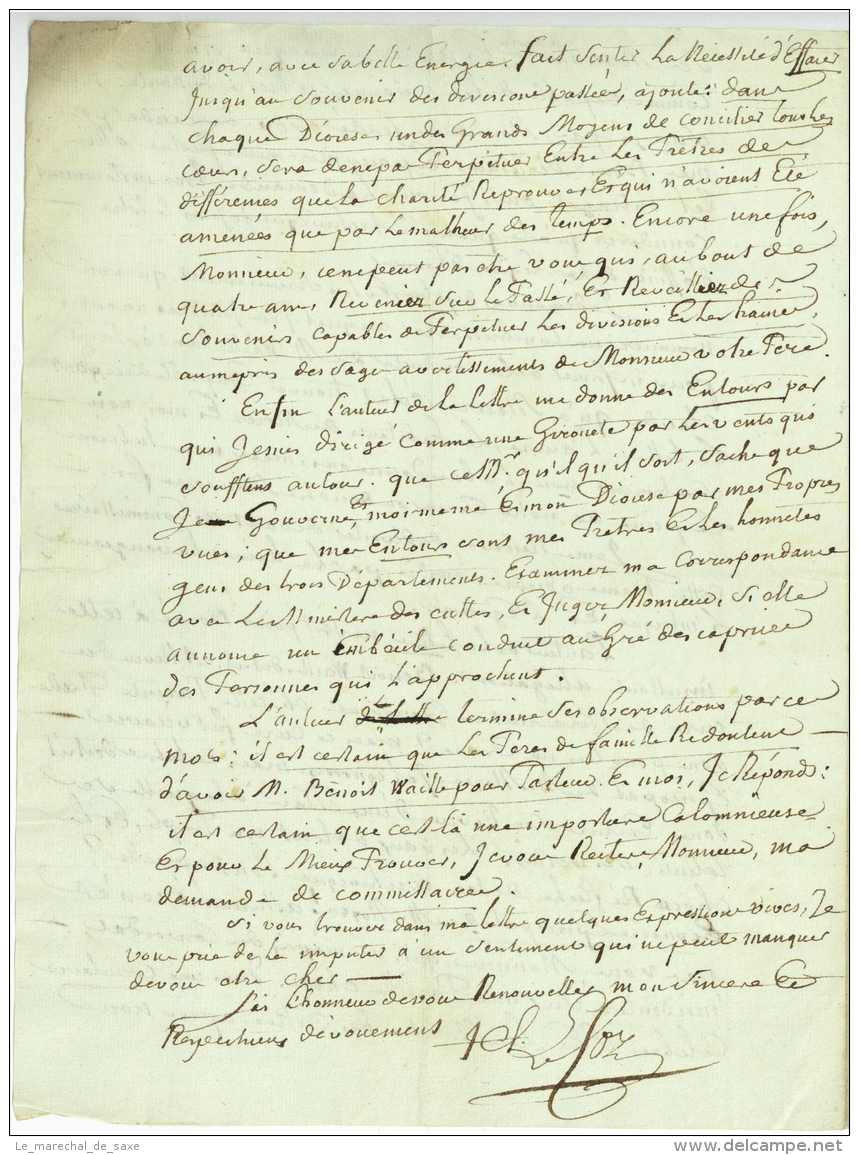 avoir, avec sa belle Energie, fait sentir La Nécessité d'Effacer
Jusqu'au souvenir des divisions passées, ajoute: dans
chaque Diocese un des Grands Moyens de concilier tous les
cœurs, sera de ne pas Perpetuer Entre Les Prêtres des
différences que la charité Reprouve, Et qui n'avoient Eté
amenées que par Le malheur des temps. Encore une fois,
Monsieur, ce ne peut pas être vous qui, au bout de
quatre ans, Reveniez sur le Passé, Et Reveilliez des
souvenirs capables de Perpetuer Les divisions Et Les haines,
au mepris des sages avertissements de Monsieur votre Pere.
Enfin L'auteur de La Lettre me donne des Entours par
qui Je suis dirigé comme une Girouete par Les vents qui
soufflent autour. que ce Mr. qu'il qu'il soit, sache que
Je Gouverne, Et moi meme Et mon Diocese par mes Propres
vues; que mes Entours sont mes Prêtres Et Les honnêtes
gens des trois Départements. Examinez ma Correspondance
avec Le Ministere des cultes, Et Jugez, Monsieur, si elle
annonce un imbécile conduit au Gré des caprices
des Personnes qui L'approchent.
L'auteur termine ses observations par ces
mots: il est certain que Les Peres de famille Redoutent
d'avoir M. Benoit Vaille pour Pasteur. Et moi, Je Répond:
il est certain que c'est là une imposture Calomnieuse.
Et pour Le Mieux Prouver, Je vous Reitere, Monsieur, ma
demande de commissaires.
Si vous trouvez dans ma Lettre quelques Expressions vives, Je
vous prie de les imputer à un sentiment qui ne peut manquer
de vous être cher
J'ai L'honneur de vous Renouveller mon sincere Et
Respectueux dévouement † Cl. Le Coz
Le_marechal_de_saxe
delcampe.net